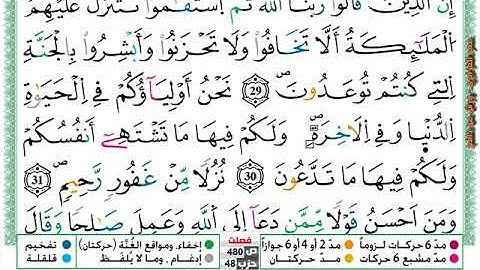 إِنَّ ٱلذِينَ قَالُواْ رَبُّنَا ٱللَّهُ ثُمَّ ٱسْتَقَٰمُواْ تَتَنَزَّلُ عَلَيْهِمُ
ٱلْمَلَٰٓئِكَةُ أَلَّا تَخَافُواْ وَلَا تَحْزَنُواْ وَأَبْشِرُواْ بِالْجَنَّةِ
ٱلتِي كُنتُمْ تُوعَدُونَ 29 نَحْنُ أَوْلِيَآؤُكُمْ فِي ٱلْحَيَوٰةِ
ٱلدُّنْيَا وَفِي ٱلَاخِرَةِ وَلَكُمْ فِيهَا مَا تَشْتَهِےٓ أَنفُسُكُمْ
وَلَكُمْ فِيهَا مَا تَدَّعُونَ 30 نُزُلًا مِّنْ غَفُورٍ رَّحِيمٍ 31
وَمَنَ اَحْسَنُ قَوْلًا مِّمَّن دَعَآ إِلَى ٱللَّهِ وَعَمِلَ صَٰلِحًا وَقَالَ
مدّ 6 حركات لزوماً مدّ 2 أو 4 أو 6 جوازاً فصلت إخفاء، ومواقع الغُنَّة (حركتان) تفخيم
مدّ مشبع 6 حركات مدّ حركتان 480 حزب 48 إدغام، وما لا يُلفَظ قلقلة